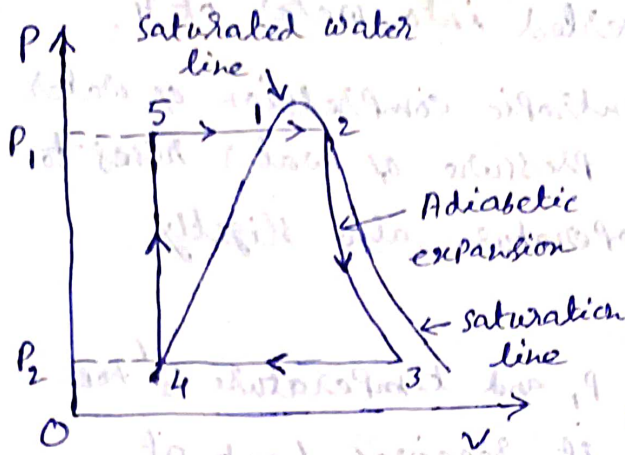 saturated water
line
P
5
1
2
P1
Adiabetic
expansion
saturation
line
P2
4
3
O
V